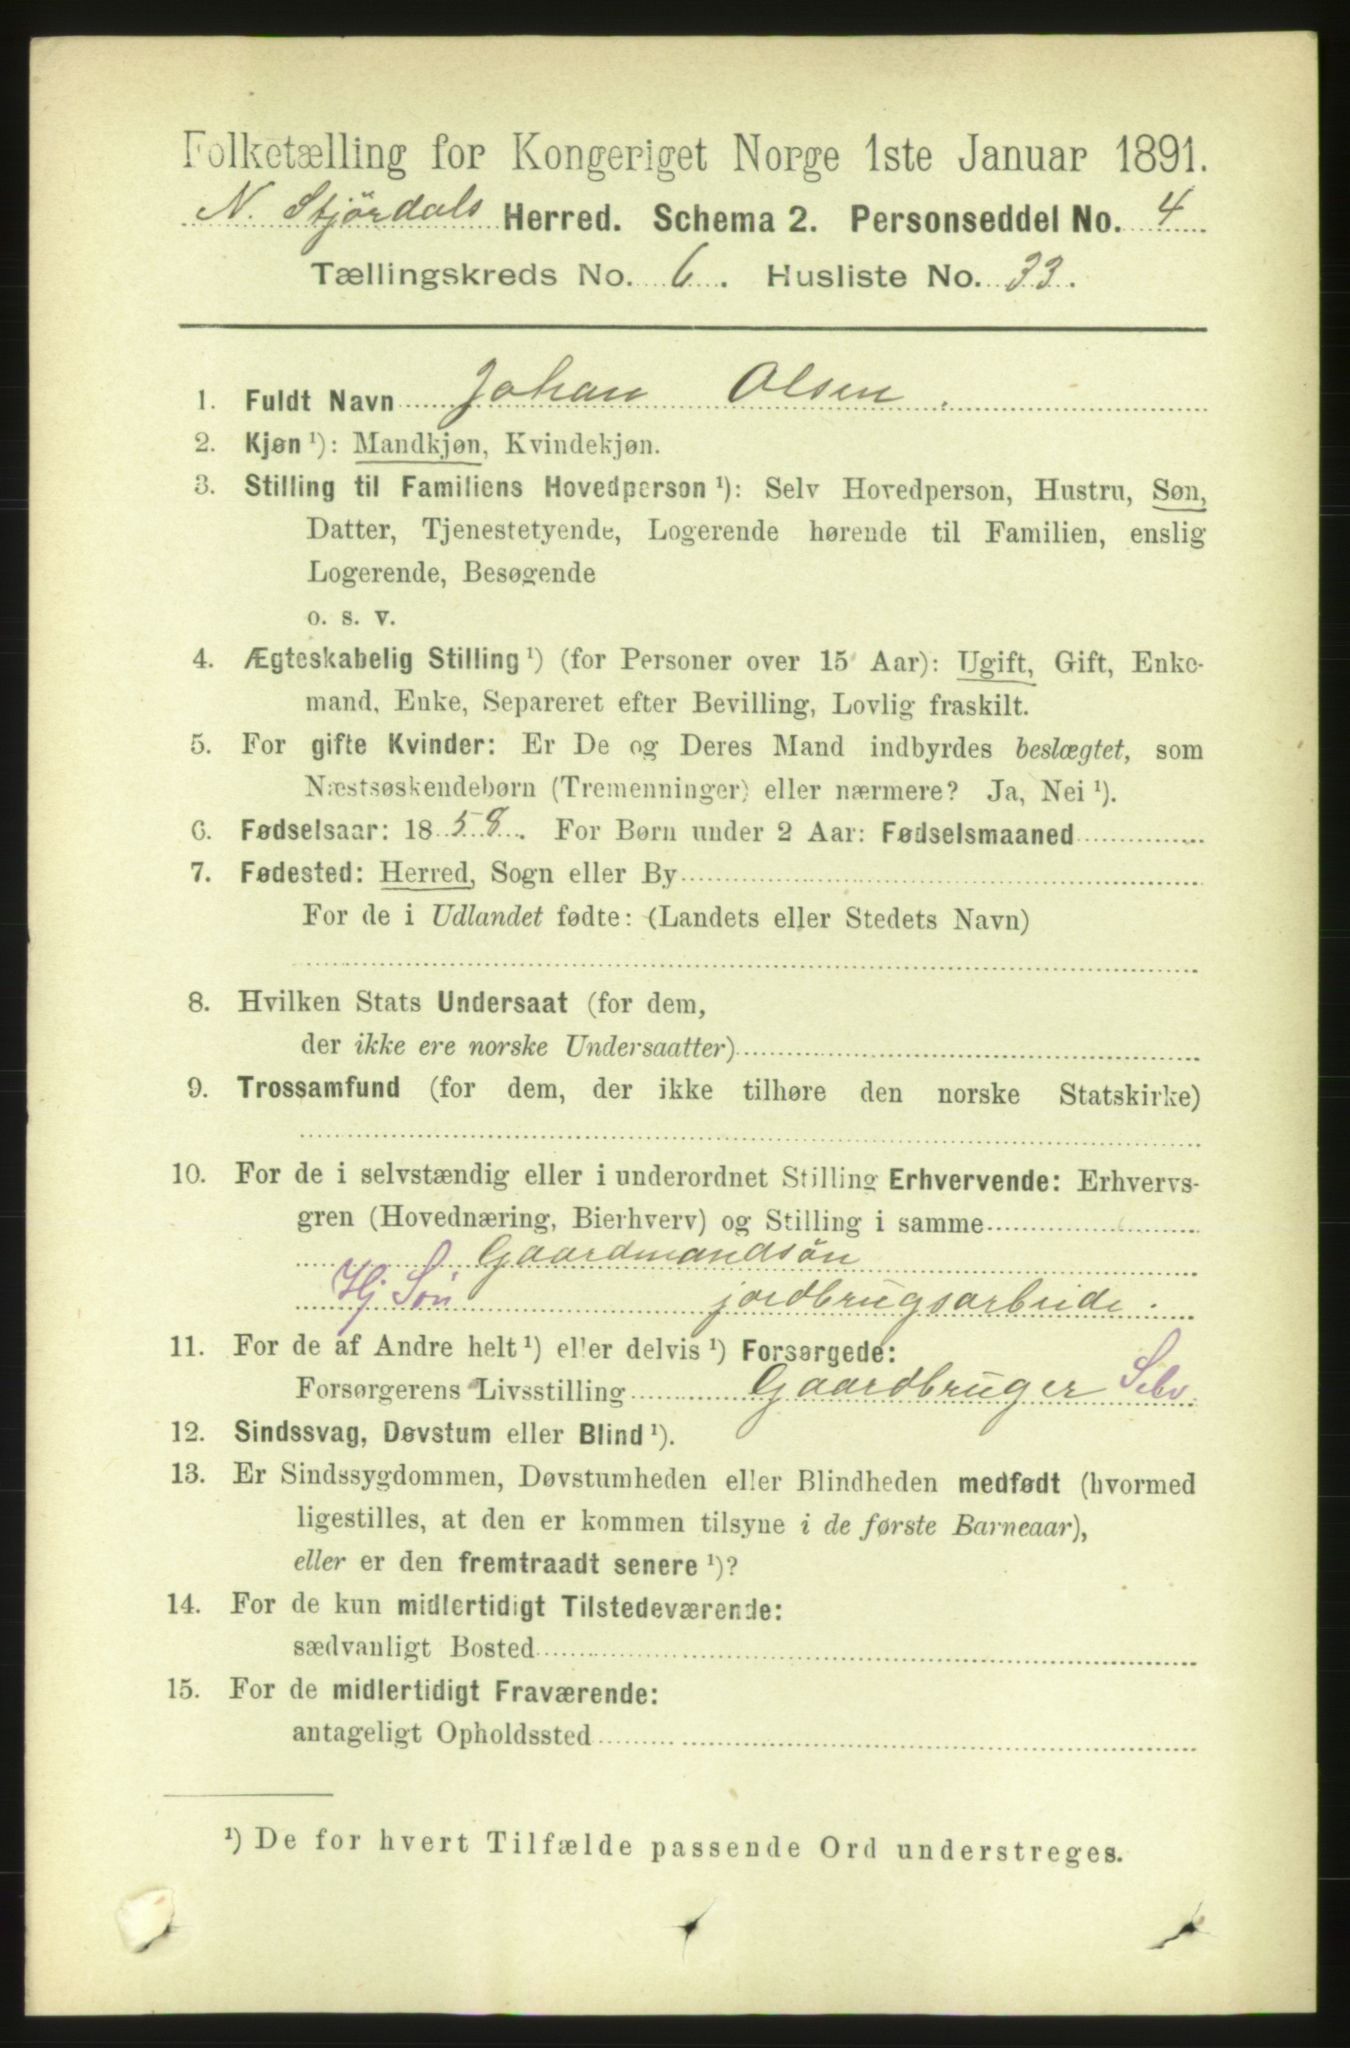 Folketælling for Kongeriget Norge 1ste Januar 1891.
N. Stjördals Herred. Schema 2. Personseddel No. 4
Tællingskreds No. 6. Husliste No. 33.
1. Fuldt Navn Johan Olsen.
2. Kjøn ¹): Mandkjøn, Kvindekjøn.
3. Stilling til Familiens Hovedperson ¹): Selv Hovedperson, Hustru, Søn,
Datter, Tjenestetyende, Logerende hørende til Familien, enslig
Logerende, Besøgende
o. s. v.
4. Ægteskabelig Stilling ¹) (for Personer over 15 Aar): Ugift, Gift, Enke-
mand, Enke, Separeret efter Bevilling, Lovlig fraskilt.
5. For gifte Kvinder: Er De og Deres Mand indbyrdes beslægtet, som
Næstsøskendebørn (Tremenninger) eller nærmere? Ja, Nei ¹).
6. Fødselsaar: 1858. For Børn under 2 Aar: Fødselsmaaned
7. Fødested: Herred, Sogn eller By
For de i Udlandet fødte: (Landets eller Stedets Navn)
8. Hvilken Stats Undersaat (for dem,
der ikke ere norske Undersaatter)
9. Trossamfund (for dem, der ikke tilhøre den norske Statskirke)
10. For de i selvstændig eller i underordnet Stilling Erhvervende: Erhvervs-
gren (Hovednæring, Bierhverv) og Stilling i samme
Gaardmandsön
Hj Sön jordbrugsarbeide.
11. For de af Andre helt ¹) eller delvis ¹) Forsørgede:
Forsørgerens Livsstilling Gaardbruger Selv.
12. Sindssvag, Døvstum eller Blind ¹).
13. Er Sindssygdommen, Døvstumheden eller Blindheden medfødt (hvormed
ligestilles, at den er kommen tilsyne i de første Barneaar),
eller er den fremtraadt senere ¹)?
14. For de kun midlertidigt Tilstedeværende:
sædvanligt Bosted
15. For de midlertidigt Fraværende:
antageligt Opholdssted
¹) De for hvert Tilfælde passende Ord understreges.